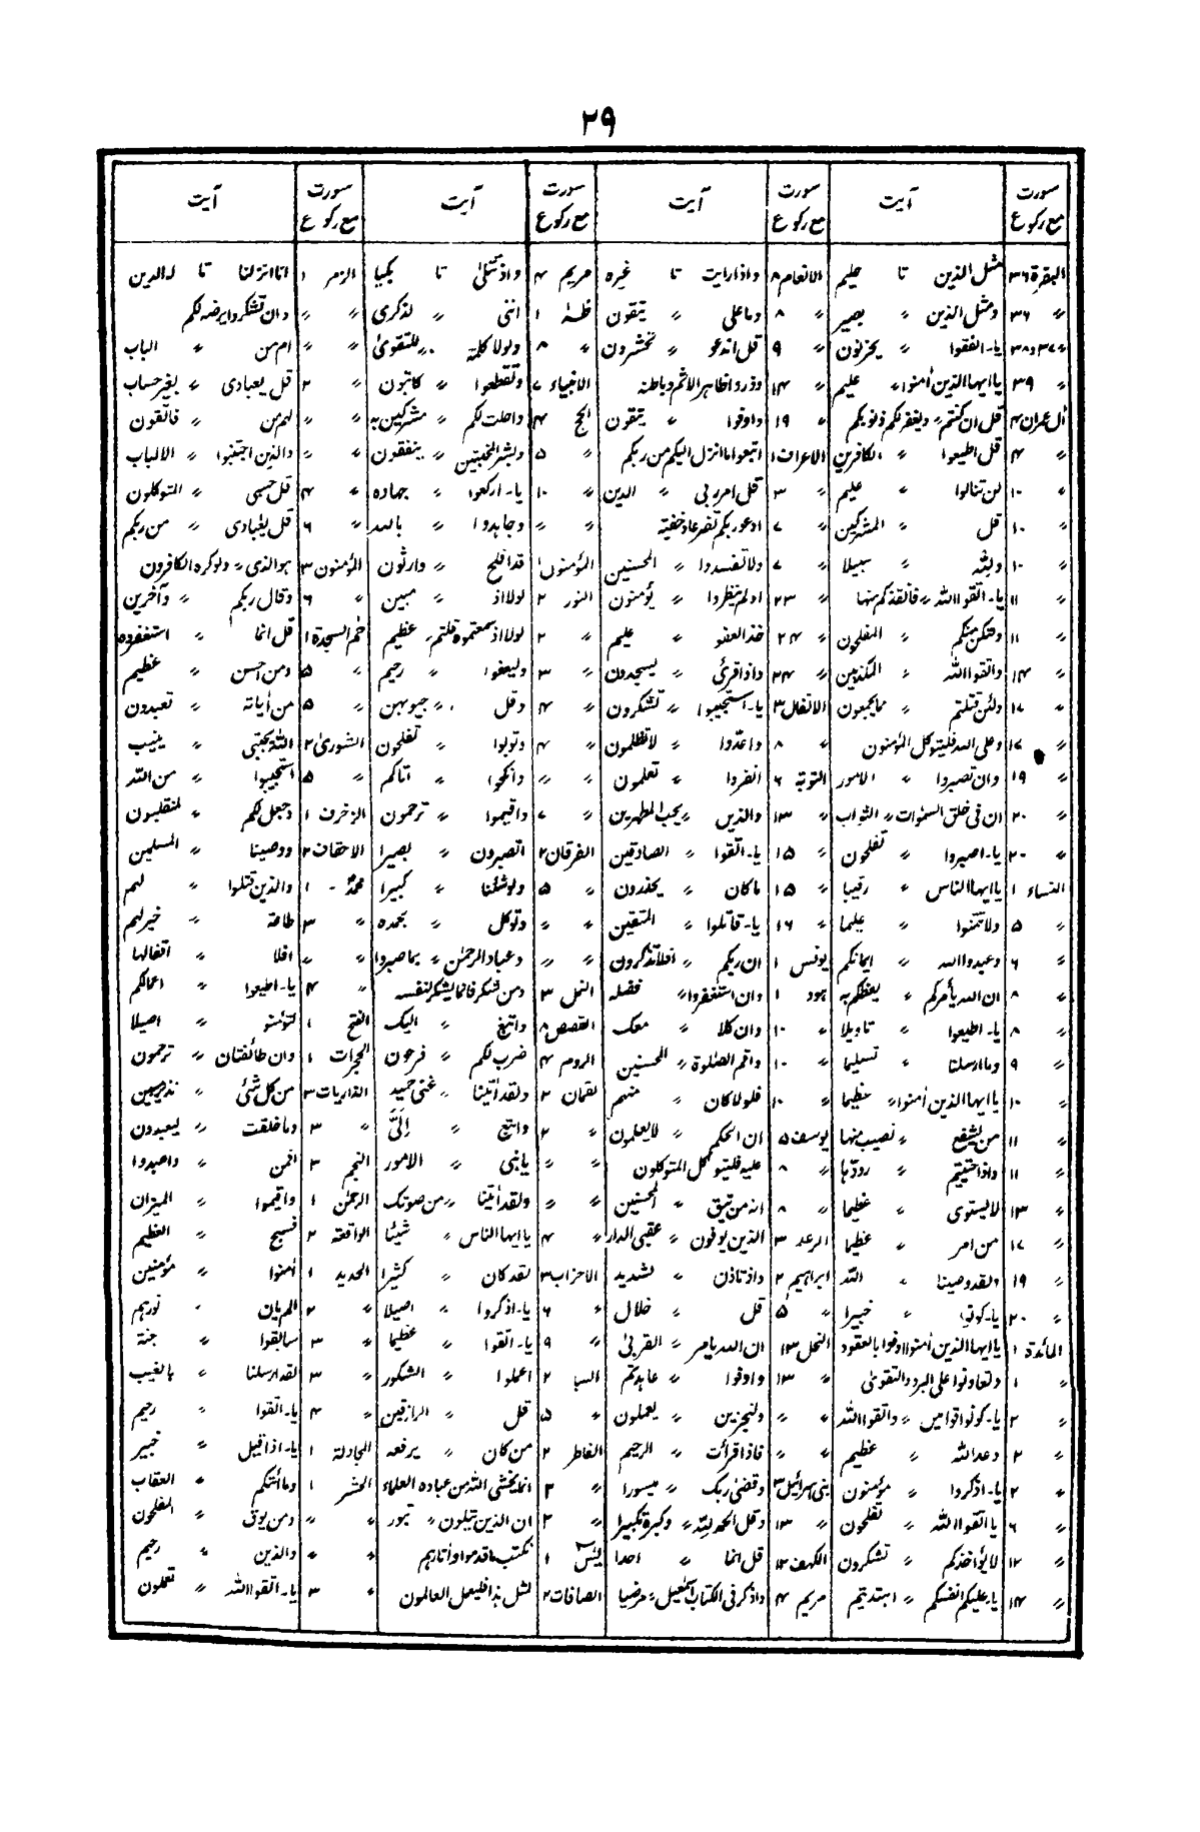 ۲۹
سورت مع رکوع | آیت | سورت مع رکوع | آیت | سورت مع رکوع | آیت | سورت مع رکوع | آیت
البقرة ۳۶ | مثل الذین تا حلیم | الانعام ۸ | واذا رایت تا غیرہ | مریم ۴ | واذ تتلیٰ تا بکیا | الزمر ۱ | انا انزلنا تا لہ الدین
〃 ۳۶ | ومثل الذین 〃 بصیر | 〃 ۸ | وما علی 〃 یتقون | طٰہٰ ۱ | اننی 〃 لذکری | 〃 〃 | وان تشکروا یرضہ لکم
〃 ۳۷ و ۳۸ | یا۔ انفقوا 〃 یحزنون | 〃 ۹ | قل اندعو 〃 تحشرون | 〃 ۸ | ولولا کلمة 〃 للتقویٰ | 〃 〃 | ام من 〃 الباب
〃 ۳۹ | یا ایہا الذین اٰمنوا 〃 علیم | 〃 ۱۴ | وذروا ظاہر الاثم وباطنہ | الانبیاء ۷ | وتقطعوا 〃 کاتبون | 〃 ۲ | قل یعبادی 〃 بغیر حساب
اٰل عمران ۴ | قل ان کنتم 〃 ویغفر لکم ذنوبکم | 〃 ۱۹ | واوفوا 〃 یتقون | الحج ۴ | واحلت لکم 〃 مشرکین بہ | 〃 〃 | لہم من 〃 فاتقون
〃 ۴ | قل اطیعوا 〃 الکافرین | الاعراف ۱ | اتبعوا ما انزل الیکم من ربکم | 〃 ۵ | وبشر المخبتین 〃 ینفقون | 〃 〃 | والذین اجتنبوا 〃 الالباب
〃 ۱۰ | لن تنالوا 〃 علیم | 〃 ۳ | قل امر ربی 〃 الدین | 〃 ۱۰ | یا۔ ارکعوا 〃 جہادہ | 〃 ۴ | قل حسبی 〃 المتوکلون
〃 ۱۰ | قل 〃 المشرکین | 〃 ۷ | ادعو ربکم تضرعا وخفیة | 〃 〃 | وجاہدوا 〃 باللہ | 〃 ۶ | قل یٰعبادی 〃 من ربکم
〃 ۱۰ | وللہ 〃 سبیلا | 〃 ۷ | ولا تفسدوا 〃 المحسنین | المؤمنون ۱ | قد افلح 〃 وارثون | المؤمنون ۳ | ہو الذی 〃 ولو کرہ الکافرون
〃 ۱۱ | یا۔ اتقوا اللہ 〃 فانقذکم منہا | 〃 ۲۳ | اولم ینظروا 〃 یؤمنون | النور ۲ | لولا اذ 〃 مبین | 〃 ۶ | وقال ربکم 〃 داٰخرین
〃 ۱۱ | ولتکن منکم 〃 المفلحون | 〃 ۲۴ | خذ العفو 〃 علیم | 〃 ۲ | لولا اذ سمعتموہ قلتم 〃 عظیم | حٰم السجدة ۱ | قل انما 〃 استغفروہ
〃 ۱۴ | واتقوا اللہ 〃 المکذبین | 〃 ۲۴ | واذا قرئ 〃 یسجدون | 〃 ۳ | ولیعفوا 〃 رحیم | 〃 ۵ | ومن احسن 〃 عظیم
〃 ۱۷ | ولئن قتلتم 〃 مما یجمعون | الانفال ۳ | یا۔ استجیبوا 〃 تشکرون | 〃 ۴ | وقل 〃 جیوبہن | 〃 ۵ | من اٰیاتہ 〃 تعبدون
〃 ۱۷ | وعلی اللہ فلیتوکل المؤمنون | 〃 ۸ | واعدوا 〃 لا تظلمون | 〃 ۴ | وتوبوا 〃 تفلحون | الشوریٰ ۲ | اللہ یجتبی 〃 ینیب
〃 ۱۹ | وان تصبروا 〃 الامور | التوبة ۶ | انفروا 〃 تعلمون | 〃 〃 | وانکحوا 〃 اتاکم | 〃 ۵ | استجیبوا 〃 من اللہ
〃 ۲۰ | ان فی خلق السمٰوات 〃 الثواب | 〃 ۱۳ | والذین 〃 یحب المطہرین | 〃 ۷ | واقیموا 〃 ترحمون | الزخرف ۱ | وجعل لکم 〃 لمنقلبون
〃 ۲۰ | یا۔ اصبروا 〃 تفلحون | 〃 ۱۵ | یا۔ اتقوا 〃 الصادقین | الفرقان ۲ | اتصبرون 〃 بصیرا | الاحقاف ۲ | ووصینا 〃 المسلمین
النساء ۱ | یا ایہا الناس 〃 رقیبا | 〃 ۱۵ | ما کان 〃 یحذرون | 〃 ۵ | ولو شئنا 〃 کبیرا | محمد ۱ | والذین قتلوا 〃 لہم
〃 ۵ | ولا تتمنوا 〃 علیما | 〃 ۱۶ | یا۔ قاتلوا 〃 المتقین | 〃 〃 | وتوکل 〃 بحمدہ | 〃 ۳ | طاعة 〃 خیرا لہم
〃 ۶ | وعبدوا اللہ 〃 ایمانکم | یونس ۱ | ان ربکم 〃 افلا تذکرون | 〃 〃 | وعباد الرحمٰن 〃 بما صبروا | 〃 〃 | افلا 〃 اقفالہا
〃 ۸ | ان اللہ یأمرکم 〃 یعظکم بہ | ہود ۱ | وان استغفروا 〃 فضلہ | النمل ۳ | ومن شکر فانما یشکر لنفسہ | 〃 ۴ | یا۔ اطیعوا 〃 اعمالکم
〃 ۸ | یا۔ اطیعوا 〃 تاویلا | 〃 ۱۰ | وان کلا 〃 معک | القصص ۸ | وابتغ 〃 الیک | الفتح ۱ | لتؤمنو 〃 اصیلا
〃 ۹ | وما ارسلنا 〃 تسلیما | 〃 ۱۰ | واقم الصلٰوة 〃 المحسنین | الروم ۴ | ضرب لکم 〃 فرحون | الحجرات ۱ | وان طائفتان 〃 ترحمون
〃 ۱۰ | یا ایہا الذین اٰمنوا 〃 عظیما | 〃 ۱۰ | فلولا کان 〃 منہم | لقمان ۲ | ولقد اٰتینا 〃 غنی حمید | الذاریات ۳ | من کل شئی 〃 نذیر مبین
〃 ۱۱ | من یشفع 〃 نصیب منہا | یوسف ۵ | ان الحکم 〃 لا یعلمون | 〃 ۲ | واتبع 〃 اِلَیَّ | 〃 ۳ | وما خلقت 〃 لیعبدون
〃 ۱۱ | واذا حییتم 〃 ردوہا | 〃 ۸ | علیہ فلیتوکل المتوکلون | 〃 〃 | یابنی 〃 الامور | النجم ۳ | افمن 〃 واعبدوا
〃 ۱۳ | لا یستوی 〃 عظیما | 〃 ۸ | انہ من یتق 〃 المحسنین | 〃 〃 | ولقد اٰتینا 〃 من صوتک | الرحمٰن ۱ | واقیموا 〃 المیزان
〃 ۱۷ | من امر 〃 عظیما | الرعد ۳ | الذین یوفون 〃 عقبی الدار | 〃 ۴ | یا ایہا الناس 〃 شیئا | الواقعة ۲ | فسبح 〃 العظیم
〃 ۱۹ | ولقد وصینا 〃 اللہ | ابراہیم ۲ | واذ تاذن 〃 لشدید | الاحزاب ۳ | لقد کان 〃 کثیرا | الحدید ۱ | اٰمنوا 〃 مؤمنین
〃 ۲۰ | یا۔ کونوا 〃 خبیرا | 〃 ۵ | قل 〃 خلال | 〃 ۶ | یا۔ اذکروا 〃 اصیلا | 〃 ۲ | الم یان 〃 نورہم
المائدة ۱ | یا ایہا الذین اٰمنوا اوفوا بالعقود | النحل ۱۳ | ان اللہ یامر 〃 القربیٰ | 〃 ۹ | یا۔ اتقوا 〃 عظیما | 〃 ۳ | سابقوا 〃 جنة
〃 ۱ | وتعاونوا علی البر والتقویٰ | 〃 ۱۳ | واوفوا 〃 عاہدتم | السبا ۲ | اعملوا 〃 الشکور | 〃 ۳ | لقد ارسلنا 〃 بالغیب
〃 ۲ | یا۔ کونوا قوامین 〃 واتقوا اللہ | 〃 〃 | ولنجزین 〃 یعملون | 〃 ۵ | قل 〃 الرازقین | 〃 ۴ | یا۔ اتقوا 〃 رحیم
〃 ۲ | وعد اللہ 〃 عظیم | 〃 〃 | فاذا قرأت 〃 الرجیم | الفاطر ۲ | من کان 〃 یرفعہ | المجادلة ۱ | یا۔ اذا قیل 〃 خبیر
〃 ۲ | یا۔ اذکروا 〃 مؤمنون | بنی اسرائیل ۳ | وقضیٰ ربک 〃 میسورا | 〃 ۳ | انما یخشی اللہ من عبادہ العلماء | الحشر ۱ | وما اٰتٰکم 〃 العقاب
〃 ۶ | یا اتقوا اللہ 〃 تفلحون | 〃 ۱۳ | وقل الحمد للہ 〃 وکبرہ تکبیرا | 〃 ۳ | ان الذین یتلون 〃 تبور | 〃 〃 | ومن یوق 〃 المفلحون
〃 ۱۲ | لا یؤاخذکم 〃 تشکرون | الکہف ۱۲ | قل انما 〃 احدا | یٰسٓ ۱ | نکتب ما قدموا واٰثارہم | 〃 〃 | والذین 〃 رحیم
〃 ۱۴ | یا۔ علیکم انفسکم 〃 اہتدیتم | مریم ۴ | واذکر فی الکتاب اسمٰعیل 〃 مرضیا | الصافات ۲ | لمثل ہذا فلیعمل العالمون | 〃 ۳ | یا۔ اتقوا اللہ 〃 تعملون